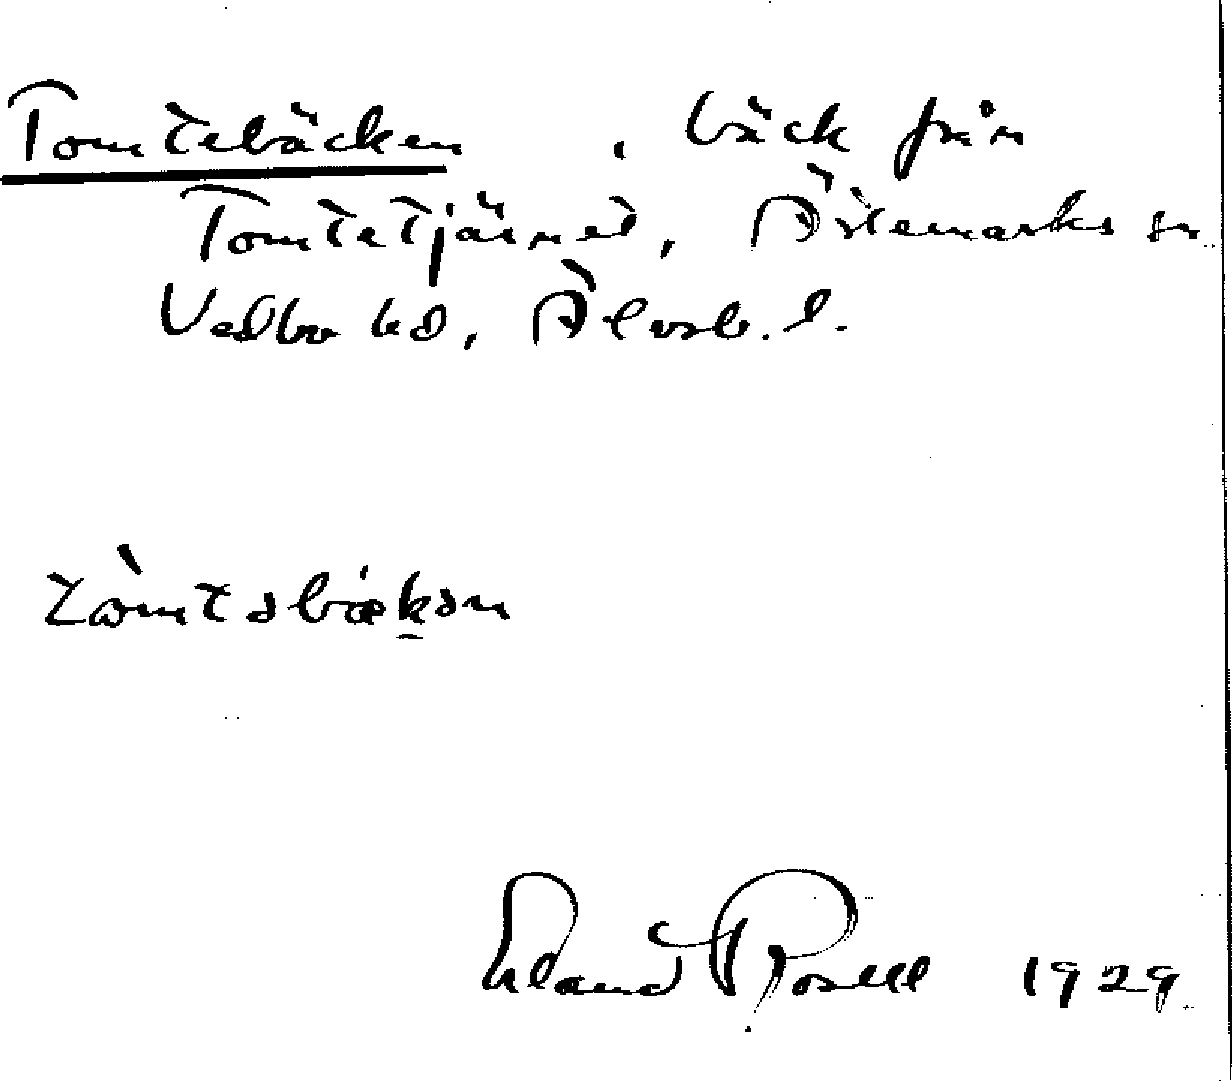 Tomtebäcken , bäck från
Tomtetjärnet, Ärtemarks sn
Vedbo hd, Älvsb. l.
tòmtəbækən
Erland Rosell 1929